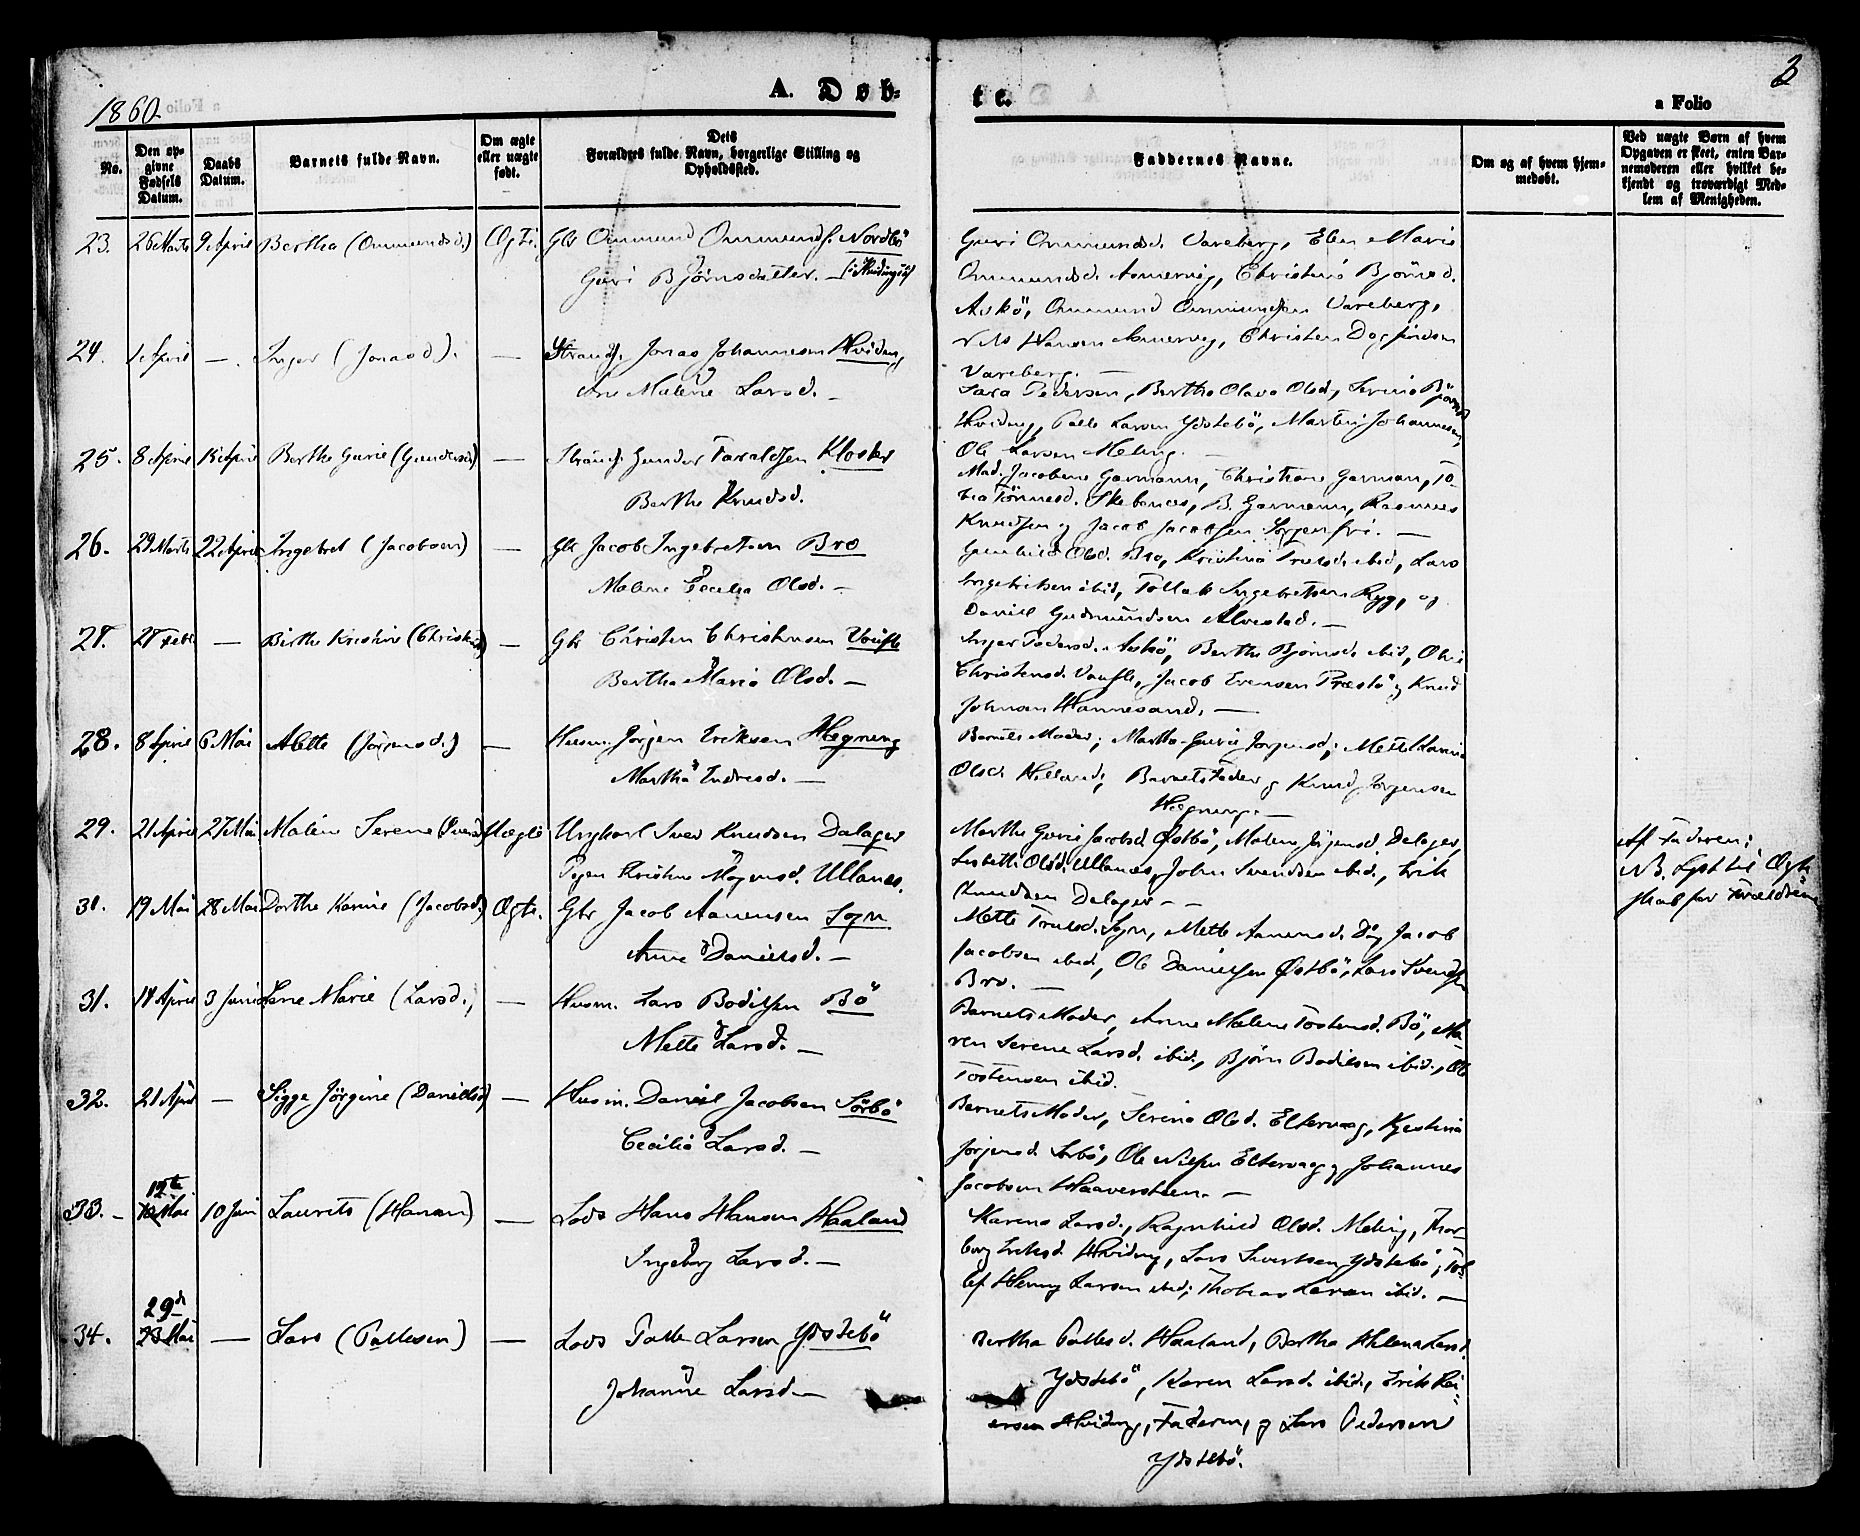 1860.
A. Døb-
te.
3
a Folio
No.
Den op-
givne
Fødsels
Datum.
Daabs
Datum.
Barnets fulde Navn.
Om ægte
eller uægte
født.
Dets
Forældres fulde Navn, borgerlige Stilling og
Opholdssted.
Faddernes Navne.
Om og af hvem hjem-
medøbt.
Ved uægte Børn af hvem
Opgaven er skeet, enten Bar-
nemoderen eller hvilket be-
kjendt og troværdigt Med-
lem af Menigheden.
23. 26 Marts 9 April Bertha (Ommundsd.) Ægte. Gbr Ommund Ommunds. Nordbö
Guri Björnsdatter. —
Guri Ommundsd. Vareberg, Elen Marie
Ommundsd. Christine Björnsd.
Askö, Ommund Ommundsen Vareberg,
Nils Hansen Christen Dagfindsen
Vareberg. —
24. 1 April — Inger (Jonasd.). — Strands. Jonas Johannesen Hviding,
Ane Malene Larsd. —
Sara Pedersen, Berthe Olava Olsd, Serine Björnsd
Hviding, Palle Larsen Ydstebö, Martin Johannesen,
Ole Larsen Meling. —
25. 8 April 15 April Berthe Gurie (Gundersd) — Strands. Gunder Taraldsen Kloster
Berthe Knudsd.
Mad. Jacobine Garmann, Christiane Garman, To-
bea Tönnesd. B. Garmann, Rasmus
Knudsen og Jacob Jacobsen Sorgenfri. —
26. 29 Marts 22 April Ingebret (Jacobsen) — Gbr Jacob Ingebretsen Bro
Malene Cecilia Olsd. —
Gunhild Olsd. Bro, Kristine Trulsd. ibid, Lars
Ingebretsen ibid, Tollak Ingebretsen Ryg, og
Daniel Gudmundsen Alvestad. —
27. 27 Feb. — Birthe Kirstine (Christensd) — Gbr Christen Christensen Voufle
Bertha Marie Olsd. —
Inger Pedersd. Askö, Berthe Björnsd. ibid,
Christensd. Voufle, Jacob Evensen Præstö og Knud
Johnsen Hannesand. —
28. 8 April 6 Mai Mette (Jörgensd.) — Husm. Jörgen Eriksen Hegning
Martha Endresd. —
Barnets Moder; Martha Gurie Jörgensd; Mette Karina
Olsd. Helland; Barnets Fader og Knud Jörgensen
Hegning. —
29. 21 April 27 Mai Malene Serene (Sveinsd) Uægte Ungkarl Svend Knudsen Dalager
Pigen Kristine Mognsd. Ullanes.
Marthe Gurie Jacobsd. Östbö, Malene Jörgensd. Dalager,
Lisbeth Olsd. Ullanes, John Svendsen ibid., Erik
Knudsen Dalager. —
Af Faderen;
NB. Lyst til Ægte-
skab for Forældrene
30. 19 Mai 28 Mai Dorthe Karine (Jacobsd.) Ægte. Gbr Jacob Aanensen Sogn
Anne Danielsd. —
Mette Trulsd. Sogn, Mette Aanensd. Jacob
Jacobsen ibid, Ole Danielsen Östbö, Lars Svendsen
Bro. —
31. 14 April 3 Juni Lene Marie (Larsd.) — Husm. Lars Bodilsen Bö
Mette Larsd. —
Barnets Moder, Anne Malene Tostensd. Bö, Ma-
ren Serene Larsd. ibid., Björn Bodilsen ibid., Ole
Tostensen ibid.
32. 21 April — Sigge Jörgine (Danielsd) — Husm. Daniel Jacobsen Sörbö
Cecilia Larsd. —
Barnets Moder, Serina Olsd. Eltervag, Kjestina
Jörgensd. Sörbö, Ole Nilsen Eltervag og Johannes
Jacobsen Haaversteen. —
12te
33. — Mai 10 Juni Laurits (Hansen) — Lods Hans Hansen Haaland
Ingeborg Larsd. —
Karena Larsd., Ragnhild Olsd. Meling, Thor-
borg Eriksd. Hviding, Lars Sivertsen Ydstebö, Tol-
lef Henning Larsen ibid; Thomas Larsen ibid. —
29de
34. 23 Mai — Lars (Pallesen) — Lods Palle Larsen Ydstebö
Johanne Larsd. —
Bertha Pallesd. Haaland, Bertha Helena Larsd.
Ydstebö, Karen Larsd. ibid., Erik Rei-
ersen Hviding, Faderen, og Lars Pedersen
Ydstebö.